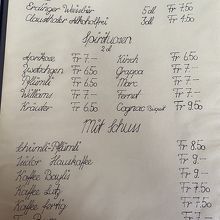 Erdinger Weissbier 5dl Fr 7.50
Clausthaler Alkoholfrei 3dl Fr 4.50
Spirituosen
2cl
Aprikose Fr 7.— Kirsch Fr 6.50
Zwetschgen Fr 7.— Grappa Fr 7.—
Pflümli Fr 7.— Marc Fr 7.—
Williams Fr 7.— Fernet Fr 7.—
Kräuter Fr 6.50 Cognac Fr 9.50
Mit Schuss
Schümli-Pflümli Fr 8.50
Tudor Hauskaffee Fr 9.—
Kaffee Baylis Fr 9.—
Kaffee Lutz Fr
Kaffee fertig Fr